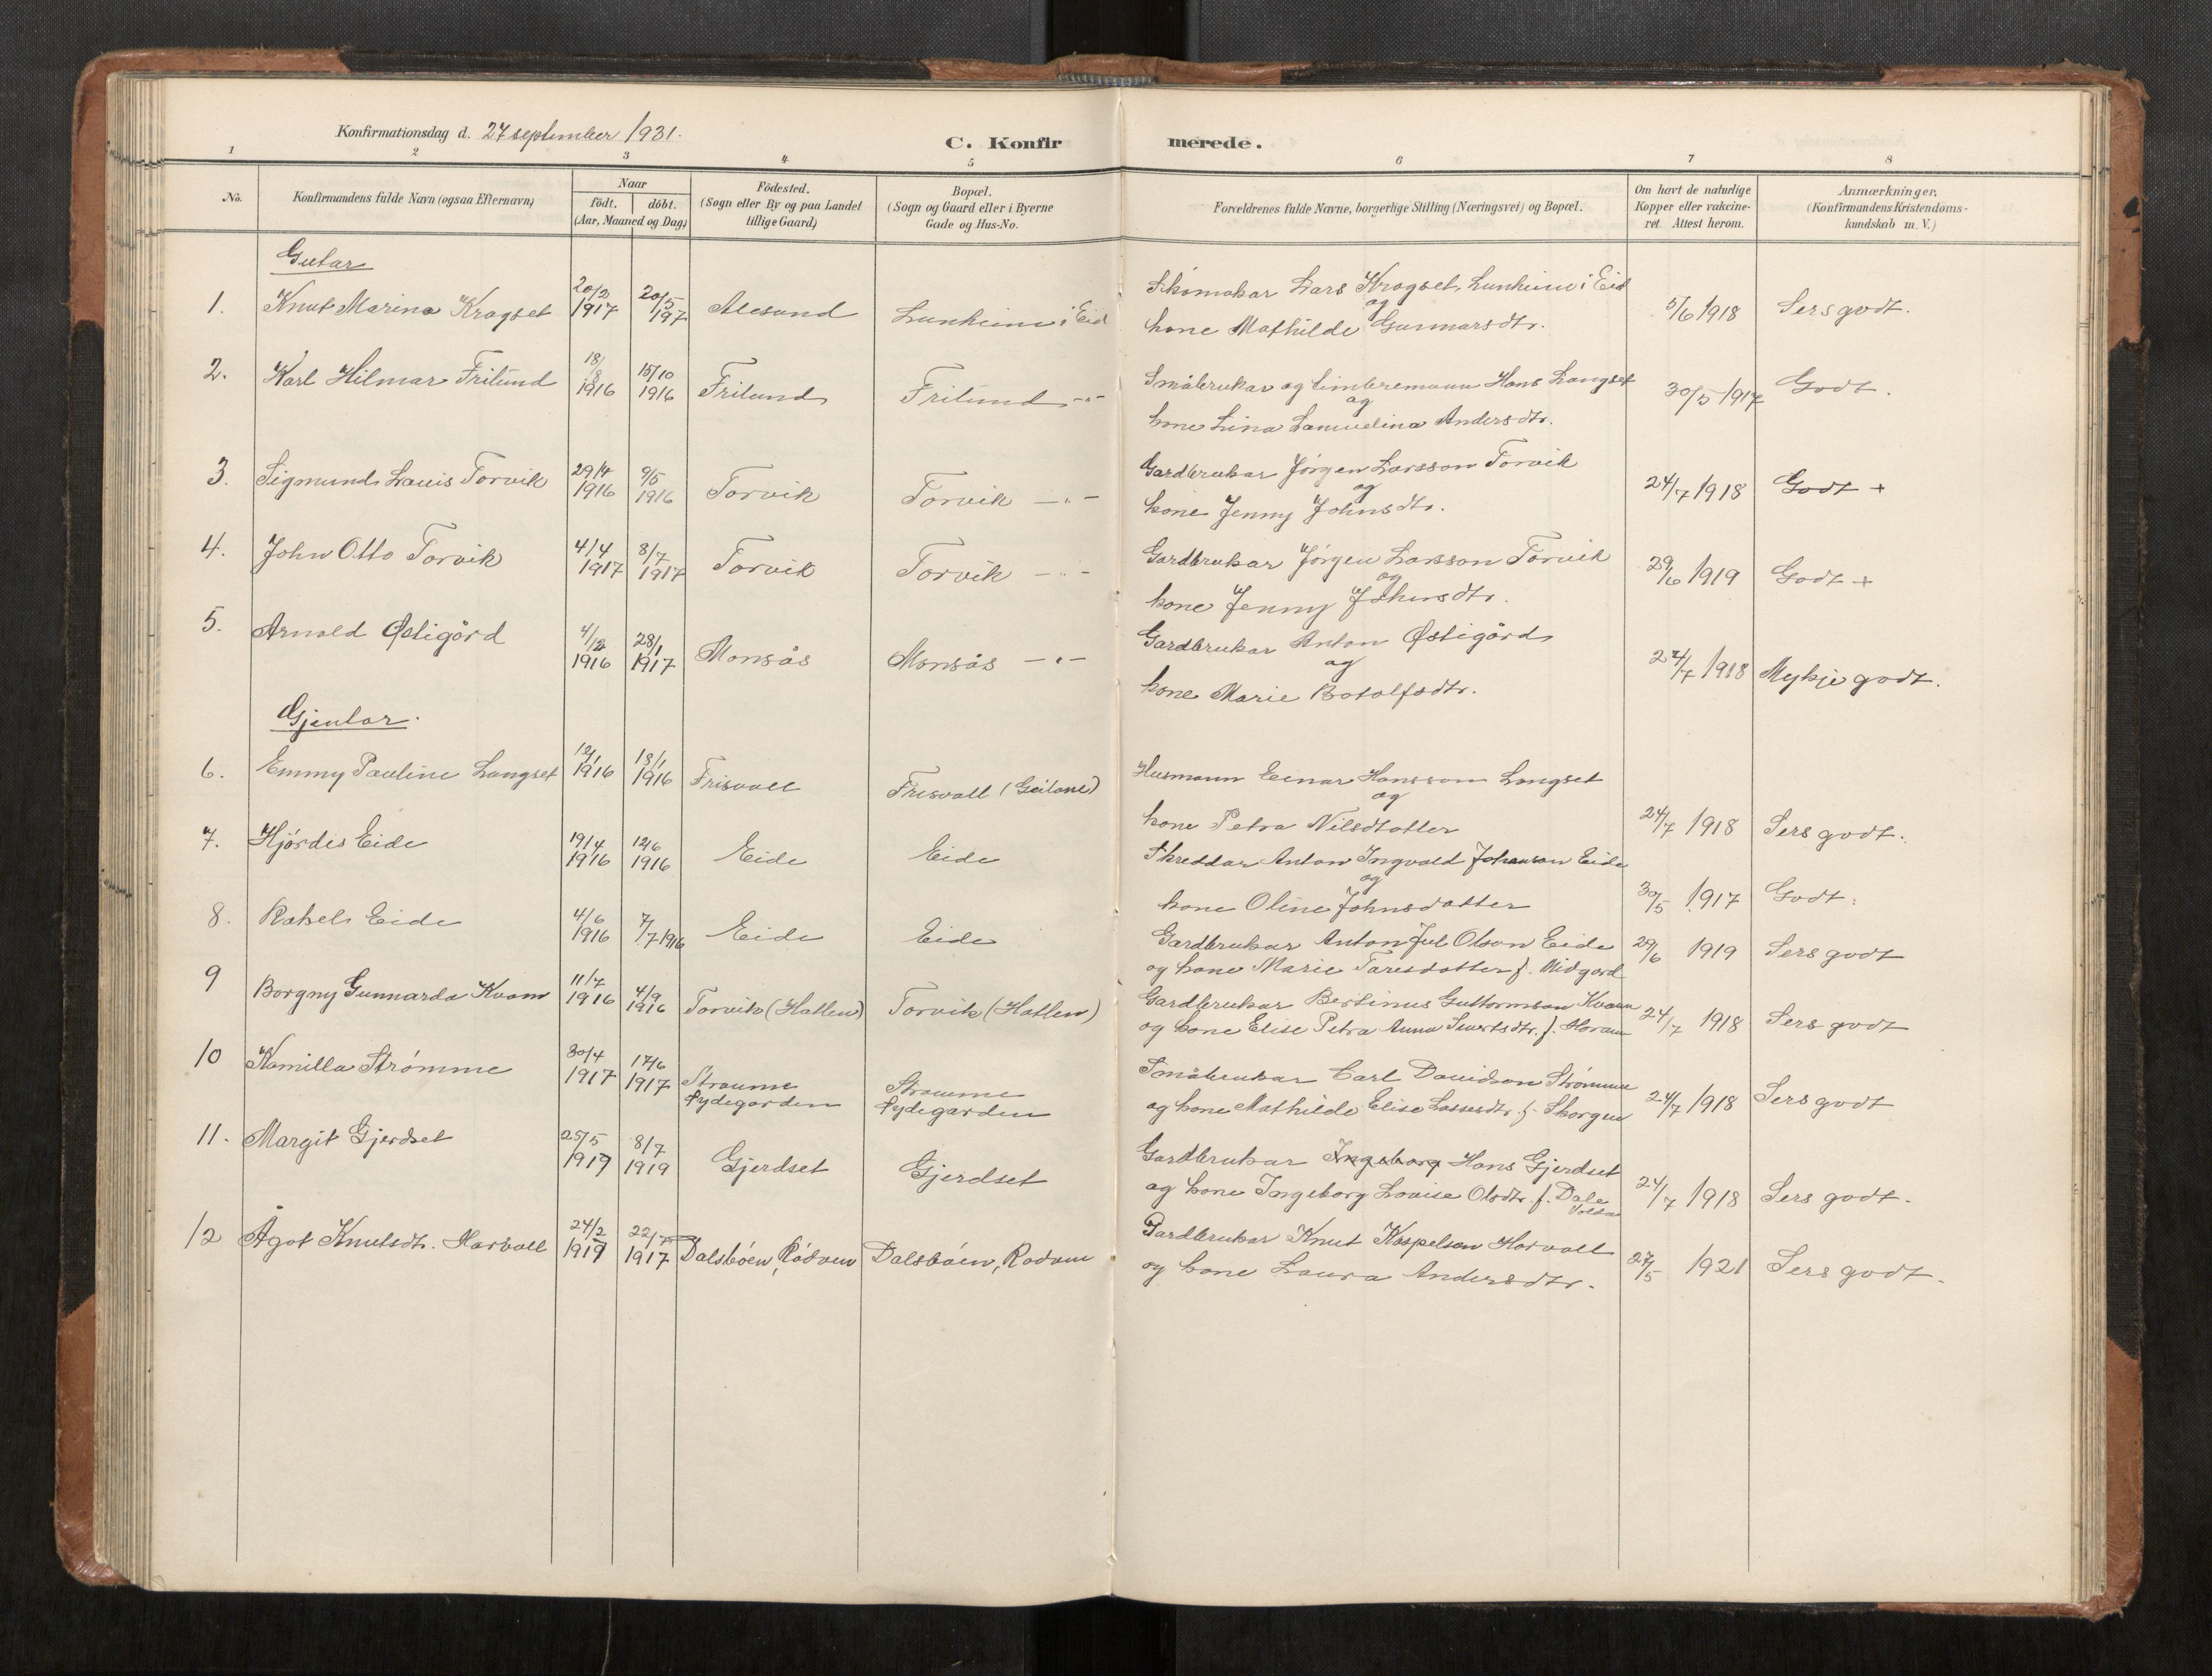 Konfirmationsdag d. 27 september 1931.
C. Konfirmerede.
1 2 3 4 5 6 7 8
No.
Konfirmandens fulde Navn (ogsaa Efternavn)
Naar
födt. döbt.
(Aar, Maaned og Dag)
Födested.
(Sogn eller By og paa Landet
tillige Gaard)
Bopæl.
(Sogn og Gaard eller i Byerne
Gade og Hus-No.
Forældrenes fulde Navne, borgerlige Stilling (Næringsvei) og Bopæl.
Om havt de naturlige
Kopper eller vakcine-
ret. Attest herom.
Anmærkninger.
(Konfirmandens Kristendoms-
kundskab m. V.)
Gutar
1. Knut Marino Kragset 20/2 1917 20/5 197 Alesund Lunheim i Eid Skómakar Lars Kragset, Lunheim i Eid
og
kone Mathilde Gunnarsdtr. 5/6 1918 Sers godt.
2. Karl Hilmar Frilund 18/8 1916 15/10 1916 Frilund Frilund -"- Småbrukar og timbremann Hans Langset
og
kone Lina Samuelina Andersdtr. 30/5 1917 Godt.
3. Sigmund Lauis Torvik 29/4 1916 9/5 1916 Torvik Torvik -"- Gardbrukar Jørgen Larsson Torvik
og
kone Jenny Johnsdtr. 24/7 1918 Godt +
4. John Otto Torvik 4/4 1917 8/7 1917 Torvik Torvik -"- Gardbrukar Jørgen Larsson Torvik
og
kone Jenny Johnsdtr. 29/6 1919 Godt +
5. Arnold Østigård 4/12 1916 28/1 1917 Monsås Monsås -"- Gardbrukar Anton Østigård
og
kone Marie Botolfsdtr. 24/7 1918 Mykje godt.
Gjentor.
6. Emmy Pauline Langset 1916 18/1 1916 Frisvoll Frisvoll (Geilane) Husmann Einar Hansson Langset
og
kone Petra Nilsdtotter 24/7 1918 Sers godt.
7. Hjórdis Eide 19/4 1916 12/6 1916 Eide Eide Skreddar Anton Ingvald Johanson Eide
og
kone Oline Johnsdatter 30/5 1917 Godt.
8. Rakel Eide 4/6 1916 7/7 1916 Eide Eide Gardbrukar Anton Jul Olson Eide
og kone Marie Taresdatter f. Midgard 29/6 1919 Sers godt
9 Borgny Gunnarda Kvam 11/7 1916 4/9 1916 Torvik (Hatlen) Torvik (Hatlen) Gardbrukar Bertinus Guttormson Kvam
og kone Elise Petra Anna Sivertsdtr. f. Horam 24/7 1918 Sers godt
10 Kamilla Strømme 30/4 1917 17/6 1917 Straume Straume Småbrukar Carl Davidson Strømme
Nydegarden Nydegarden og kone Mathilde Elise Lassesdtr. f. Skorgen 24/7 1918 Sers godt
11. Margit Gjerdset 25/5 1917 8/7 1919 Gjerdset Gjerdset Gardbrukar Ingeborg Hans Gjerdset
og kone Ingeborg Lovise Olsdtr. f. Dale
Volda 24/7 1918 Sers godt.
12 Ågot Knutsdtr. Horvoll 24/2 1917 22/7 1917 Dalsbóen, Ródven Dalsbóen, Rodven Gardbrukar Knut Kaspelson Horvoll
og kone Laura Andersdtr. 27/5 1921 Sers godt.